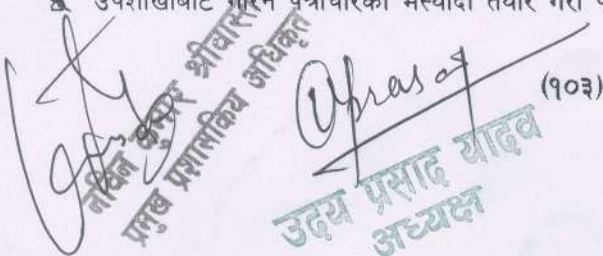 उपशाखाबाट गरिने पत्राचारको मस्यौदा तयार गरी
नविन कुमार श्रीवास्तव
प्रमुख प्रशासकिय अधिकृत
(१०३)
उदय प्रसाद यादव
अध्यक्ष